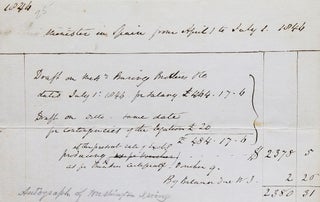 1844
Minister in Spain from April 1 to July 1. 1844
Draft on Mess Barings Brothers & Co
dated July 1st 1844 for salary £464.17.6
Draft on ditto same date
for contingencies of the Legation £ 20
£484.17.6
at the present rate of
producing
as per
2378 5
By balance due W. I. 2 26
2380 31
Autograph of Washington Irving